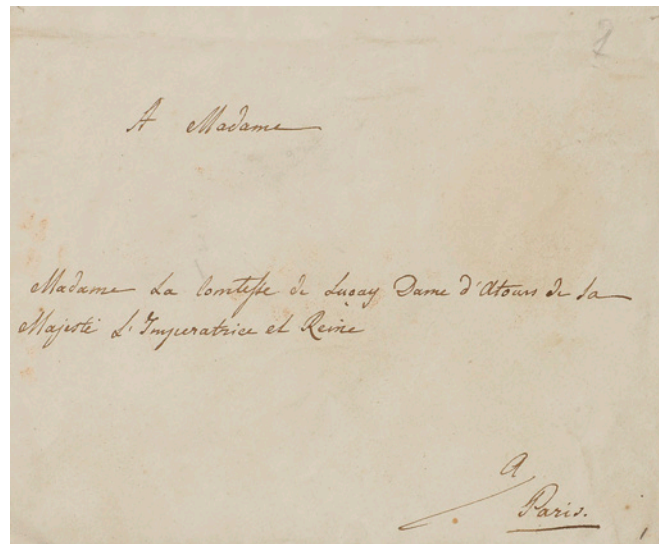 A Madame
Madame La Comtesse de Lucay Dame d'Atours de Sa
Majesté L'Imperatrice et Reine
A
Paris.